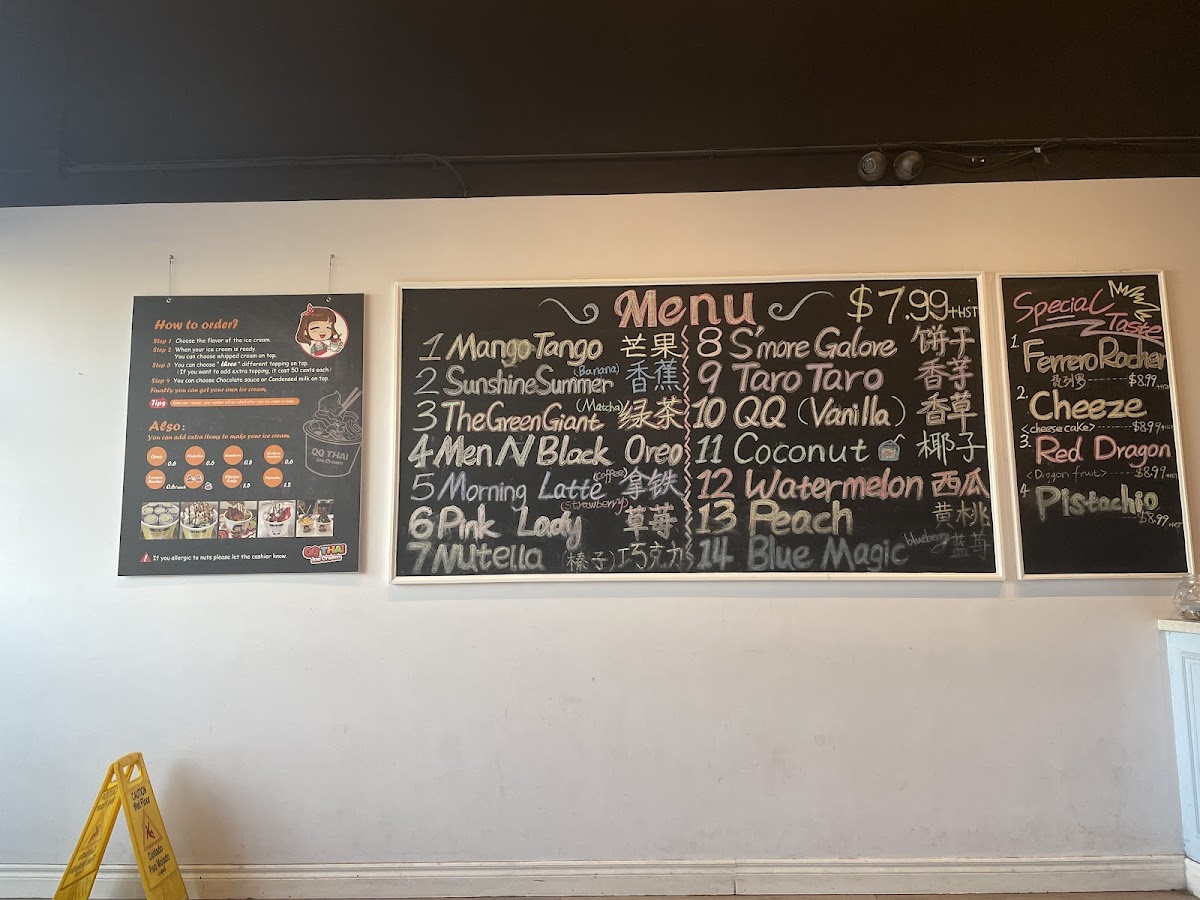 How to order?
Step 1 Choose the flavor of the ice cream.
Step 2 When your ice cream is ready.
You can choose whipped cream on top.
Step 3 You can choose " three" different topping on top.
( If you want to add extra topping, it cost 50 cents each )
Step 4 You can choose Chocolate sauce or Condensed milk on top.
Finally you can get your own ice cream.
Tips
Also:
You can add extra items to make your ice cream
Oreo 0.6
QQ THAI
Ice Cream
If you allergic to nuts please let the cashier know.
QQ THAI
Ice Cream
Menu $7.99+HST
1 Mango Tango 芒果
2 Sunshine Summer (Banana) 香蕉
3 The Green Giant (Matcha) 绿茶
4 Men N Black Oreo
5 Morning Latte (coffee) 拿铁
6 Pink Lady (strawberry) 草莓
7 Nutella (榛子)巧克力
8 S'more Galore 饼干
9 Taro Taro 香芋
10 QQ (Vanilla) 香草
11 Coconut 椰子
12 Watermelon 西瓜
13 Peach 黄桃
14 Blue Magic blueberry 蓝莓
Special Taste
1. Ferrero Rocher
费列罗 ------ $8.99+HST
2. Cheeze
<cheese cake> ------ $8.99+HST
3. Red Dragon
<Dragon fruit> ------ $8.99+HST
4 Pistachio
---$8.99+HST
CAUTION
Wet Floor
Cuidado
Piso Mojado